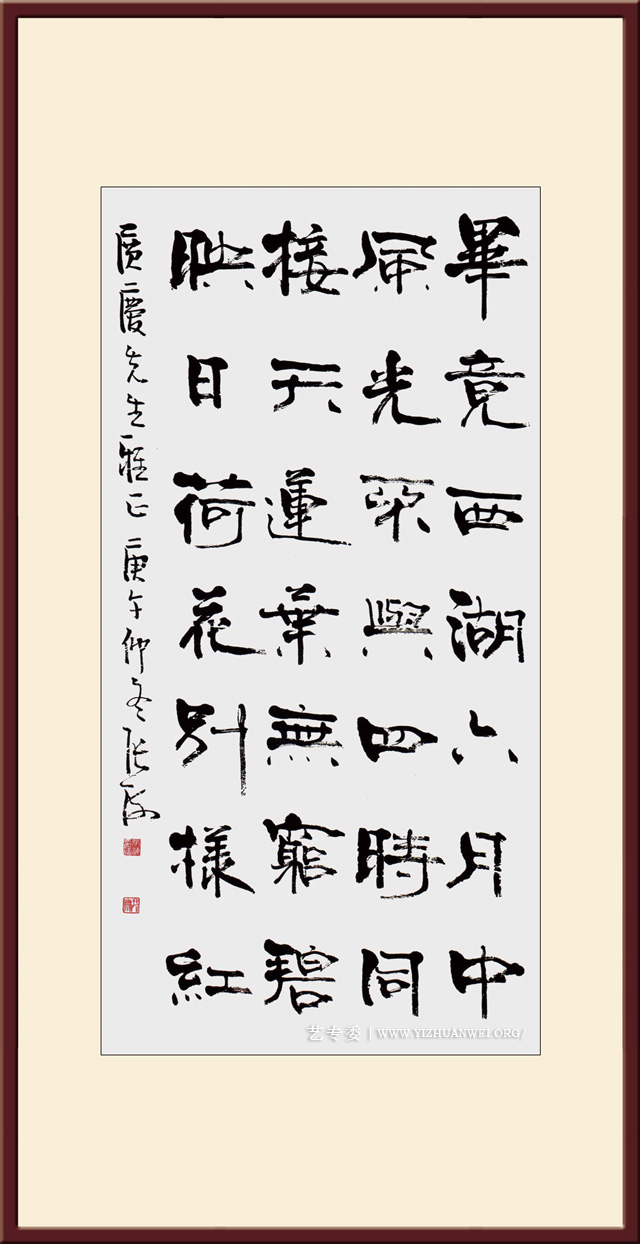 畢竟西湖六月中
風光不與四時同
接天蓮葉無窮碧
映日荷花別樣紅
慶先生雅正 庚午仲冬張
艺专委 | WWW.YIZHUANWEI.ORG/